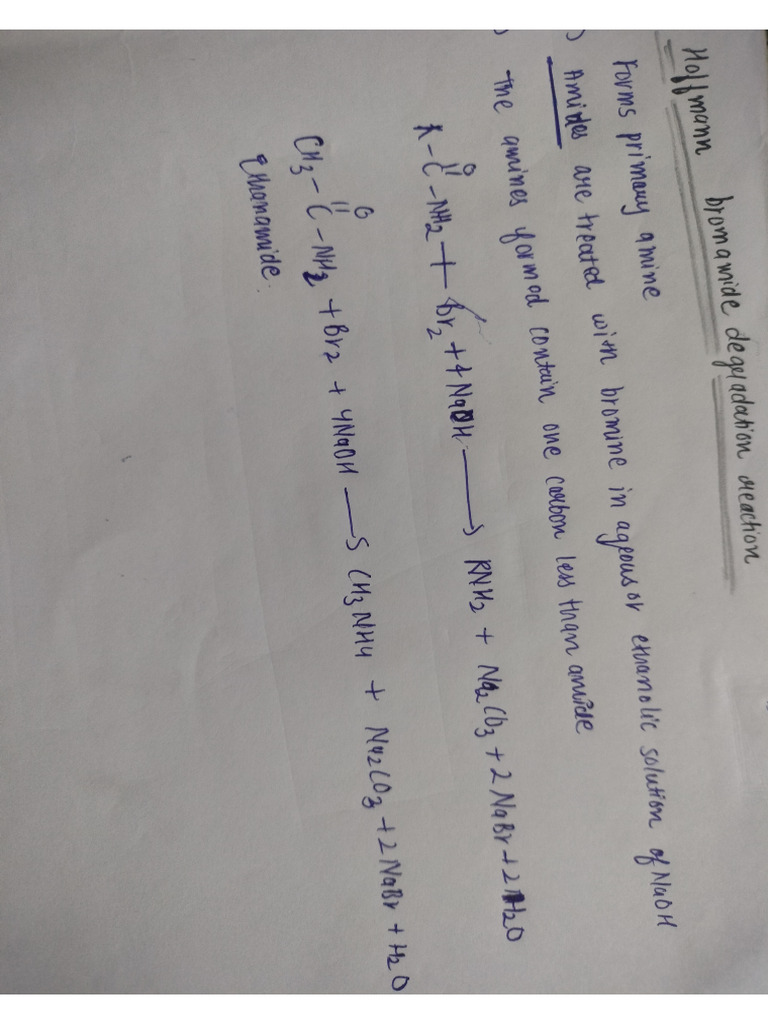 Hoffmann bromamide degradation reaction
Forms primary amine
) Amides are treated with bromine in aqeous or ethanolic solution of NaOH
) The amines formed contain one carbon less than amide
O
R-C-NH2 + Br2 + 4NaOH → RNH2 + Na2CO3 + 2NaBr + 2H2O
O
CH3-C-NH2 + Br2 + 4NaOH → CH3NH4 + Na2CO3 + 2NaBr + H2O
Ethanamide.